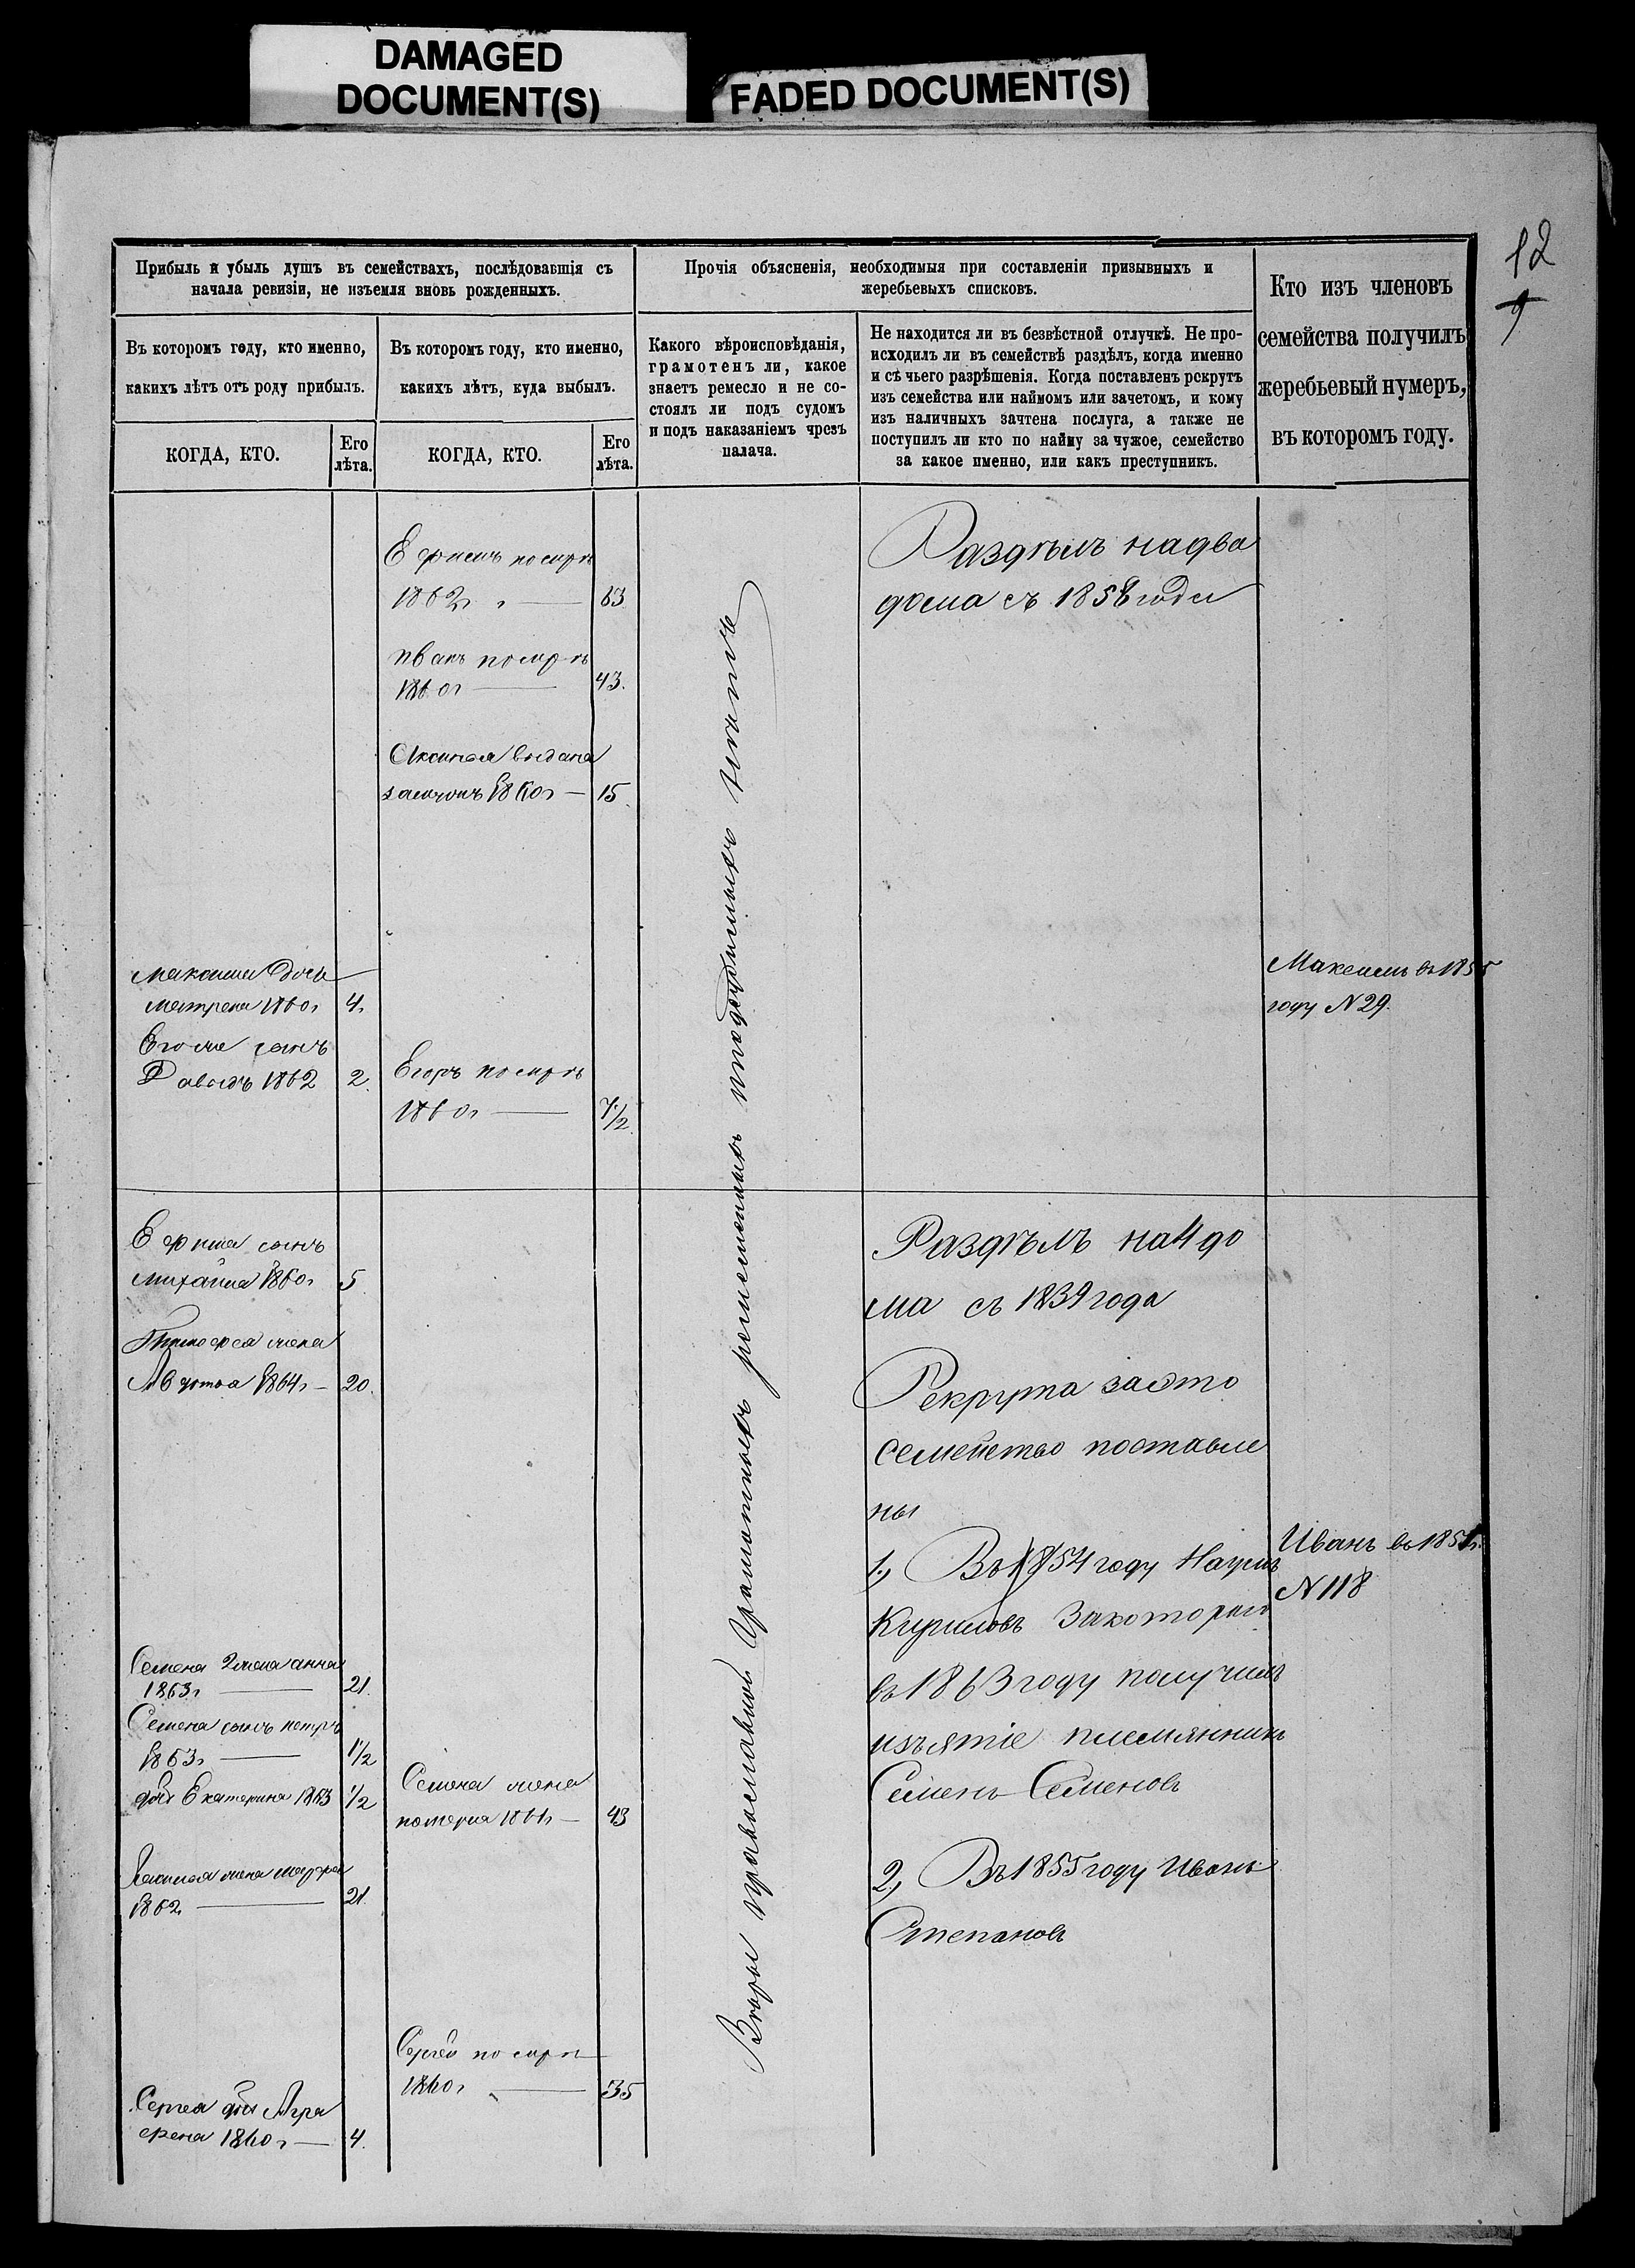 DAMAGED
DOCUMENT(S)
FADED DOCUMENT(S)
12
9
Прибыль и убыль душъ въ семействахъ, послѣдовавшія съ
начала ревизіи, не изъемля вновь рожденныхъ.
Прочія объясненія, необходимыя при составленіи призывныхъ и
жеребьевыхъ списковъ.
Кто изъ членовъ
семейства получилъ
жеребьевый нумеръ,
въ которомъ году.
Въ которомъ году, кто именно,
какихъ лѣтъ отъ роду прибылъ.
Въ которомъ году, кто именно,
какихъ лѣтъ, куда выбылъ.
Какого вѣроисповѣданія,
грамотенъ ли, какое
знаетъ ремесло и не со-
стоялъ ли подъ судомъ
и подъ наказаніемъ чрезъ
палача.
Не находится ли въ безвѣстной отлучкѣ. Не про-
исходилъ ли въ семействѣ раздѣлъ, когда именно
и съ чьего разрѣшенія. Когда поставленъ рекрутъ
изъ семейства или наймомъ или зачетомъ, и кому
изъ наличныхъ зачтена послуга, а также не
поступилъ ли кто по найму за чужое, семейство
за какое именно, или какъ преступникъ.
КОГДА, КТО.
Его
лѣта.
КОГДА, КТО.
Его
лѣта.
Ефимъ помръ
1862г 63
Иванъ помръ
1860г 43.
Аксинья выдана
замужъ 1860г 15.
Раздѣлъ надва
дома съ 1858 года
Максима дочь
Матрена 1860г 4.
Его же сынъ
Давыдъ 1862 2.
Егоръ помръ
1860г 7/2
Максимъ въ 1855
году N 29.
Вѣры православной Грамотныхъ ремесленныхъ подсудимыхъ нѣтъ
Ефима сынъ
Михайла 1860г 5
Тимофея жена
Авдотья 1864г 20.
Раздѣлъ на 4 до
ма съ 1839 года
Рекрута заэто
семейство поставле
ны
1, Въ 1854 году Наумъ
Кириловъ Закотораго
въ 1863 году получилъ
изъятіе племянникъ
Семенъ Семеновъ
2, Въ 1855 году Иванъ
Степановъ
Иванъ въ 1854г.
N 118
Семена 2 жена Анна
1863г 21.
Семена сынъ Петръ
1863г 1/2
дочь Екатерина 1863 1/2
Семена жена
померла 1861г 43
жена Марфа
1862 21.
Сергѣй помръ
1860г 35
Сергея дочь Агра
фена 1860г 4.